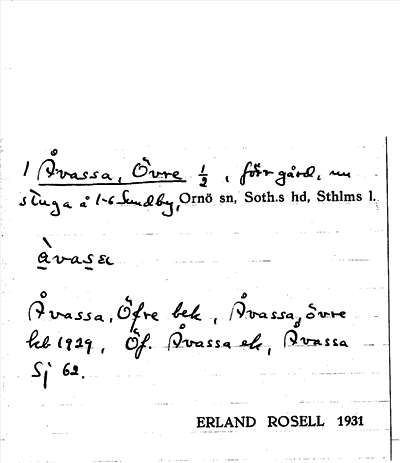 1 Åvassa, Övre 1/2, förr gård, nu
stuga å 1-6 Sundby, Ornö sn, Soth.s hd, Sthlms l.
åvasa
Åvassa, Öfre bek, Åvassa, övre
kb 1929, Öf. Åvassa ek, Åvassa
Sj 62.
ERLAND ROSELL 1931